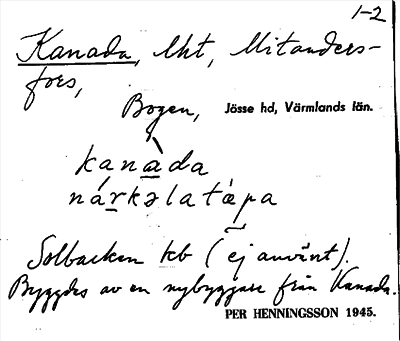 1-2
Kanada, lht, Mitanders-
fors,
Bogen, Jösse hd, Värmlands län.
kanàda
nárkəlatɑpa
Solbacken kb (ej använt).
Byggdes av en nybyggare från Kanada.
PER HENNINGSSON 1945.